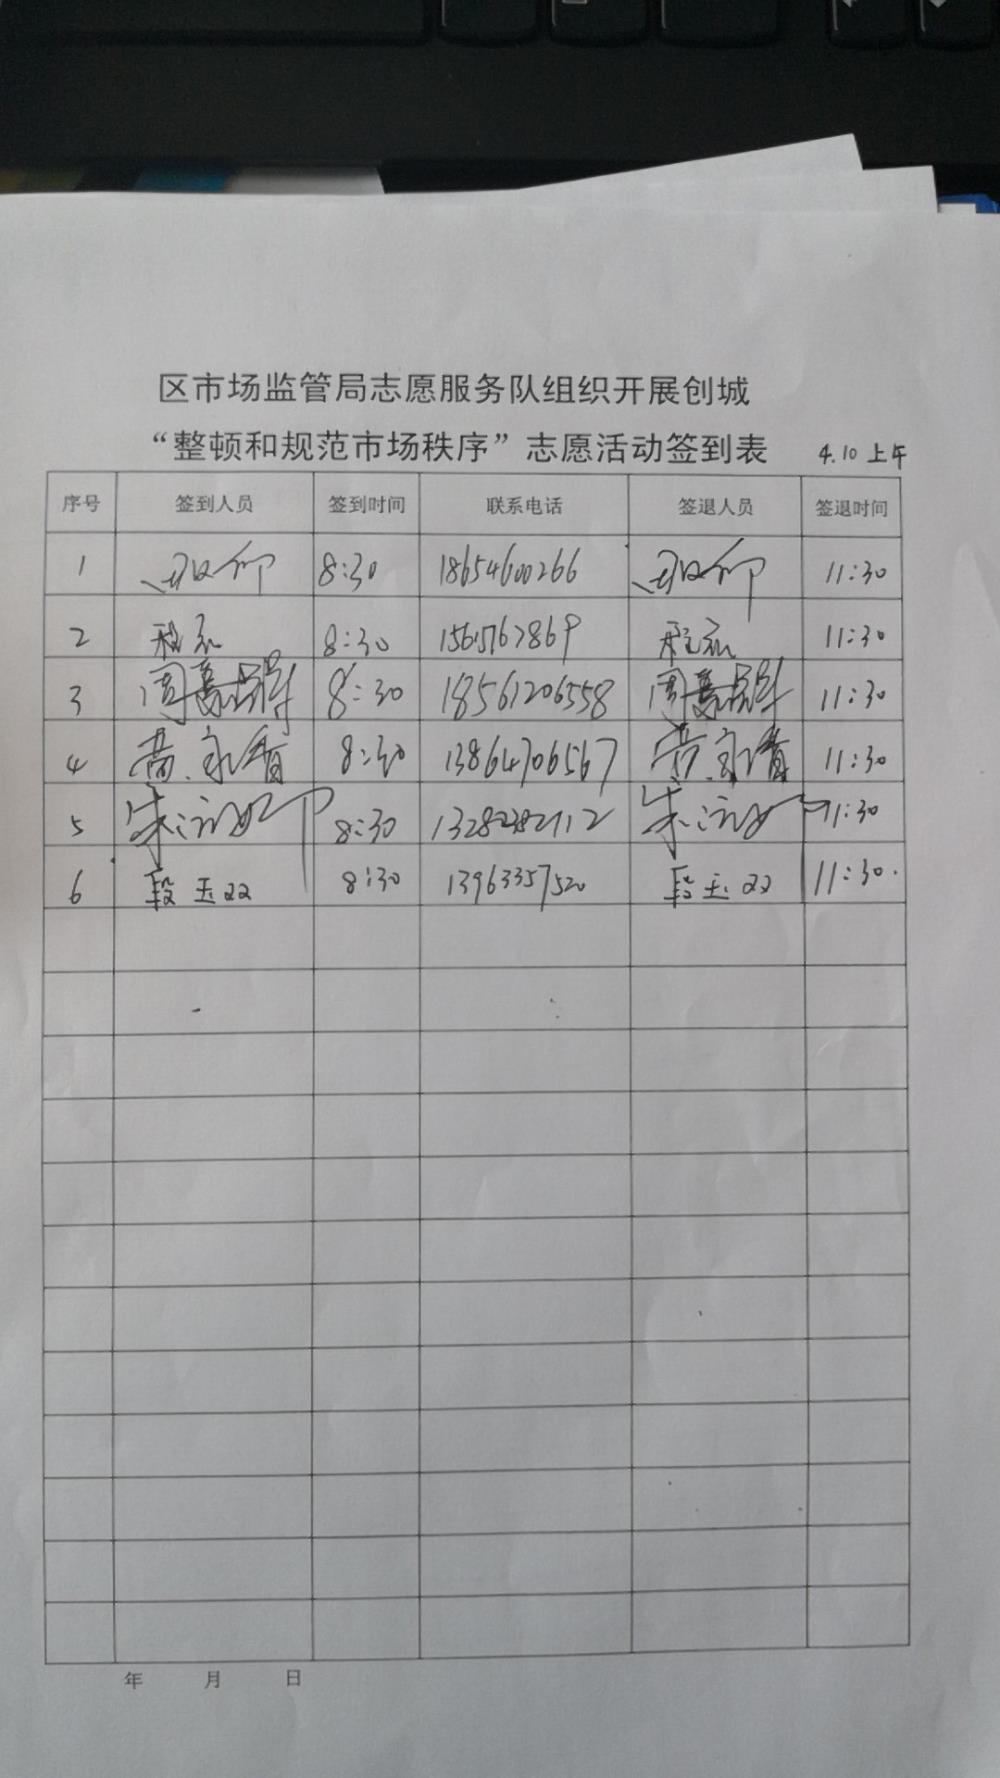 区市场监管局志愿服务队组织开展创城
“整顿和规范市场秩序”志愿活动签到表 4.10 上午
序号 签到人员 签到时间 联系电话 签退人员 签退时间
1 8:30 18654600266 11:30
2 程 8:30 11:30
3 周 8:30 18561206558 周 11:30
4 8:30 13864706567 11:30
5 朱 8:30 朱 11:30
6 段玉双 8:30 13963357520 段玉双 11:30.
年 月 日